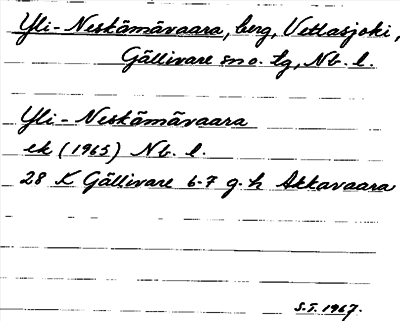 Yli-Neskämävaara, berg, Vettasjoki,
Gällivare sn o. tg, Nb. l.
Yli-Neskämävaara
ek (1965) Nb. l.
28 K Gällivare 6-7 g-h Akkavaara
S.S. 1967.